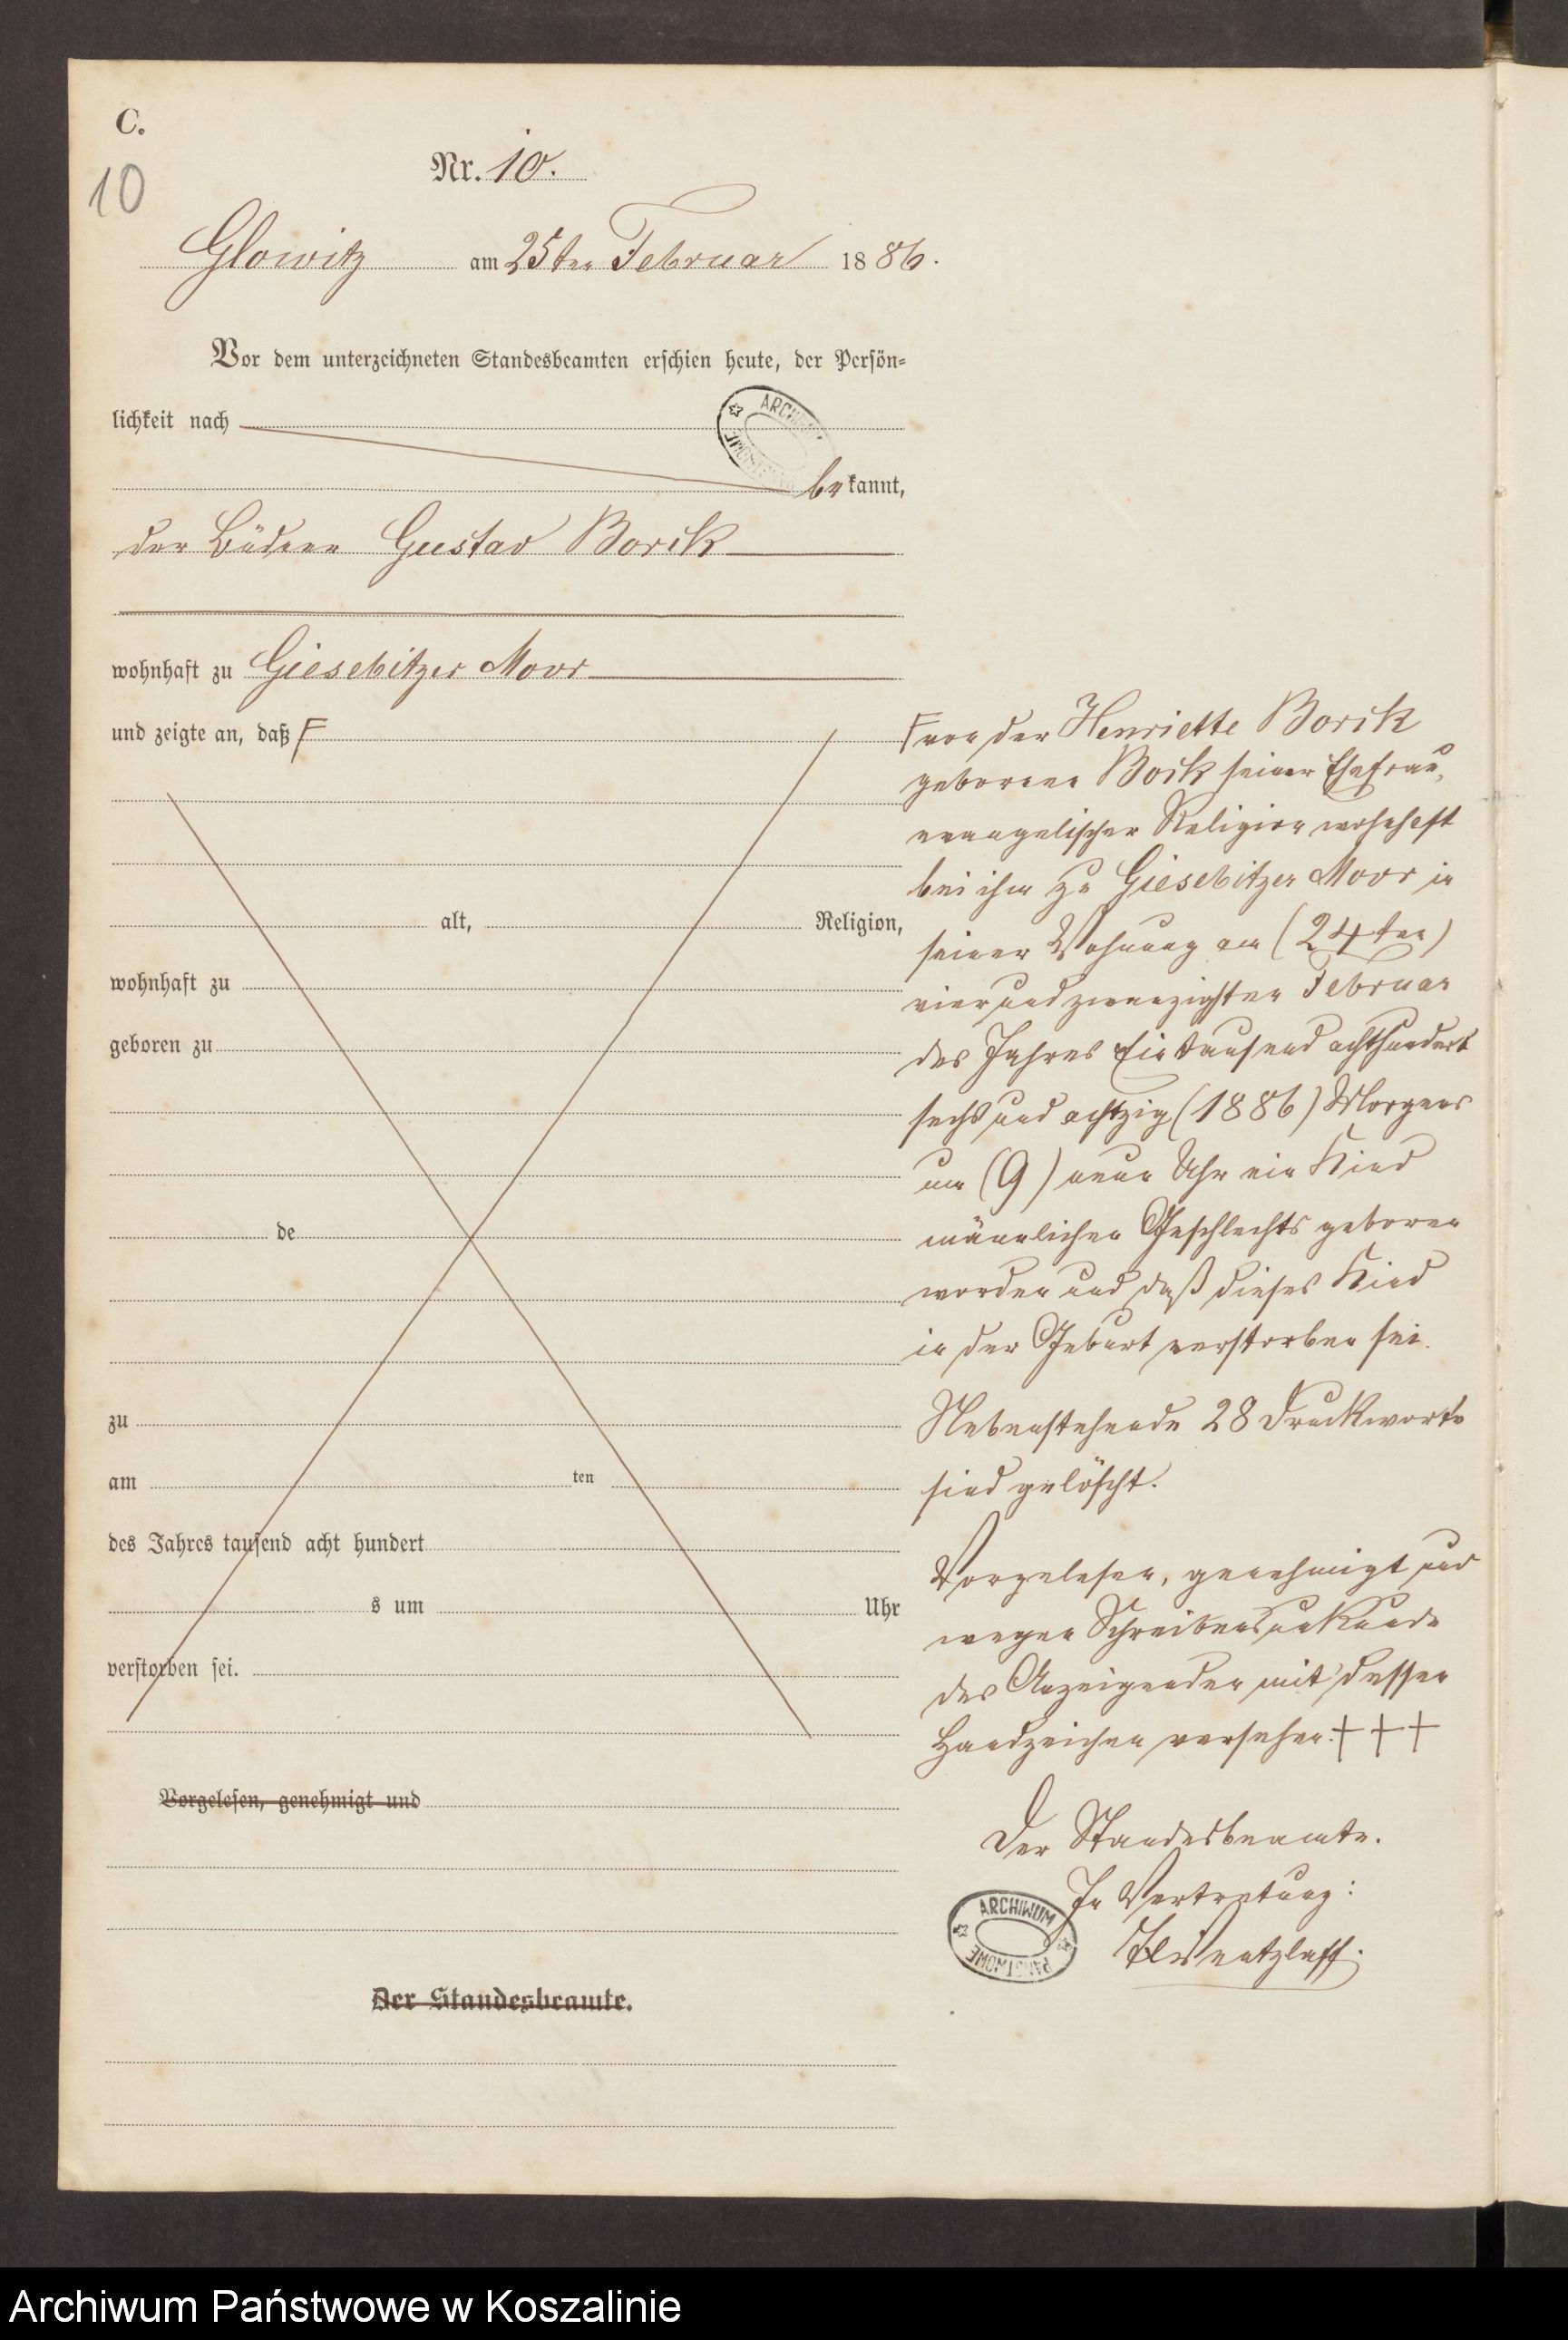 C.
10
Nr. 10.
Glowitz am 25ten Februar 1886.
Vor dem unterzeichneten Standesbeamten erschien heute, der Persön-
lichkeit nach
bekannt,
der Büdner Gustav Borik
wohnhaft zu Giesebitzer Moor
und zeigte an, daß F
alt, Religion,
wohnhaft zu
geboren zu
de
zu
am ten
des Jahres tausend acht hundert
s um Uhr
verstorben sei.
Vorgelesen, genehmigt und
Der Standesbeamte.
F von der Henriette Borik
geborene Bock seiner Ehefrau,
evangelischer Religion wohnhaft
bei ihm zu Giesebitzer Moor in
seiner Wohnung am (24ten)
vierundzwanzigsten Februar
des Jahres Eintausend achthundert
sechs und achtzig (1886) Morgens
um (9) neun Uhr ein Kind
männlichen Geschlechts geboren
worden und daß dieses Kind
in der Geburt verstorben sei.
Nebenstehende 28 Druckworte
sind gelöscht.
Vorgelesen, genehmigt und
wegen Schreibensunkunde
des Anzeigenden mit dessen
Handzeichen versehen. + + +
Der Standesbeamte.
In Vertretung:
ARCHIWUM
PAŃSTWOWE
Archiwum Państwowe w Koszalinie